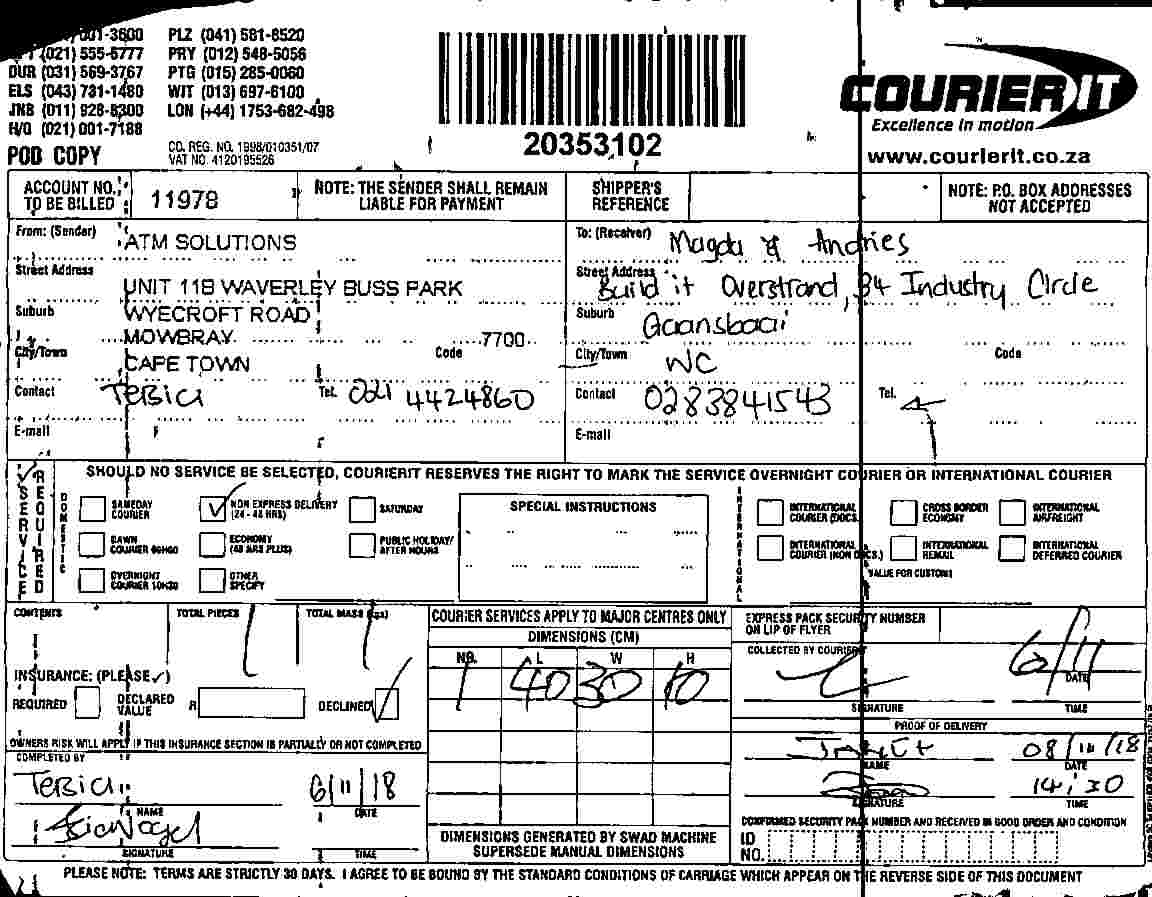 001-3600 PLZ (041) 581-8520
(021) 555-6777 PRY (012) 548-5056
DUR (031) 569-3767 PTG (015) 285-0060
ELS (043) 731-1480 WIT (013) 697-6100
JNB (011) 928-8300 LON (+44) 1753-682-498
H/O (021) 001-7188
POD COPY
CO. REG. NO. 1998/010351/07
VAT NO. 4120195526
20353102
COURIER IT
Excellence in motion
www.courierit.co.za
ACCOUNT NO. TO BE BILLED 11978
NOTE: THE SENDER SHALL REMAIN LIABLE FOR PAYMENT
SHIPPER'S REFERENCE
NOTE: P.O. BOX ADDRESSES NOT ACCEPTED
From: (Sender) ATM SOLUTIONS
Street Address
UNIT 11B WAVERLEY BUSS PARK
Suburb WYECROFT ROAD
MOWBRAY 7700
City/Town Code
CAPE TOWN
Contact Tebici Tel. 021 4424860
E-mail
To: (Receiver) Magda & Andries
Street Address Build it Overstrand, 34 Industry Circle
Suburb Gaansbaai
City/Town WC Code
Contact 0283841543 Tel.
E-mail
SERVICE REQUIRED
SHOULD NO SERVICE BE SELECTED, COURIERIT RESERVES THE RIGHT TO MARK THE SERVICE OVERNIGHT COURIER OR INTERNATIONAL COURIER
DOMESTIC
SAMEDAY COURIER
NON EXPRESS DELIVERY (24 - 48 HRS)
SATURDAY
DAWN COURIER 09H00
ECONOMY (48 HRS PLUS)
PUBLIC HOLIDAY/ AFTER HOURS
OVERNIGHT COURIER 10H30
OTHER SPECIFY
SPECIAL INSTRUCTIONS
INTERNATIONAL
INTERNATIONAL COURIER (DOCS.)
CROSS BORDER ECONOMY
INTERNATIONAL AIRFREIGHT
INTERNATIONAL COURIER (NON DOCS.)
INTERNATIONAL REMAIL
INTERNATIONAL DEFERRED COURIER
VALUE FOR CUSTOMS
CONTENTS
TOTAL PIECES 1
TOTAL MASS (kgs) 1
INSURANCE: (PLEASE ✓)
REQUIRED DECLARED VALUE R DECLINED
OWNERS RISK WILL APPLY IF THIS INSURANCE SECTION IS PARTIALLY OR NOT COMPLETED
COMPLETED BY
Tebici 6/11/18
NAME DATE
SIGNATURE TIME
COURIER SERVICES APPLY TO MAJOR CENTRES ONLY
DIMENSIONS (CM)
NO. L W H
1 40 30 10
DIMENSIONS GENERATED BY SWAD MACHINE SUPERSEDE MANUAL DIMENSIONS
EXPRESS PACK SECURITY NUMBER ON LIP OF FLYER
COLLECTED BY COURIER
6/11
DATE
SIGNATURE TIME
PROOF OF DELIVERY
Janet 08/11/18
NAME DATE
14:30
SIGNATURE TIME
CONFIRMED SECURITY PACK NUMBER AND RECEIVED IN GOOD ORDER AND CONDITION
ID NO.
PLEASE NOTE: TERMS ARE STRICTLY 30 DAYS. I AGREE TO BE BOUND BY THE STANDARD CONDITIONS OF CARRIAGE WHICH APPEAR ON THE REVERSE SIDE OF THIS DOCUMENT